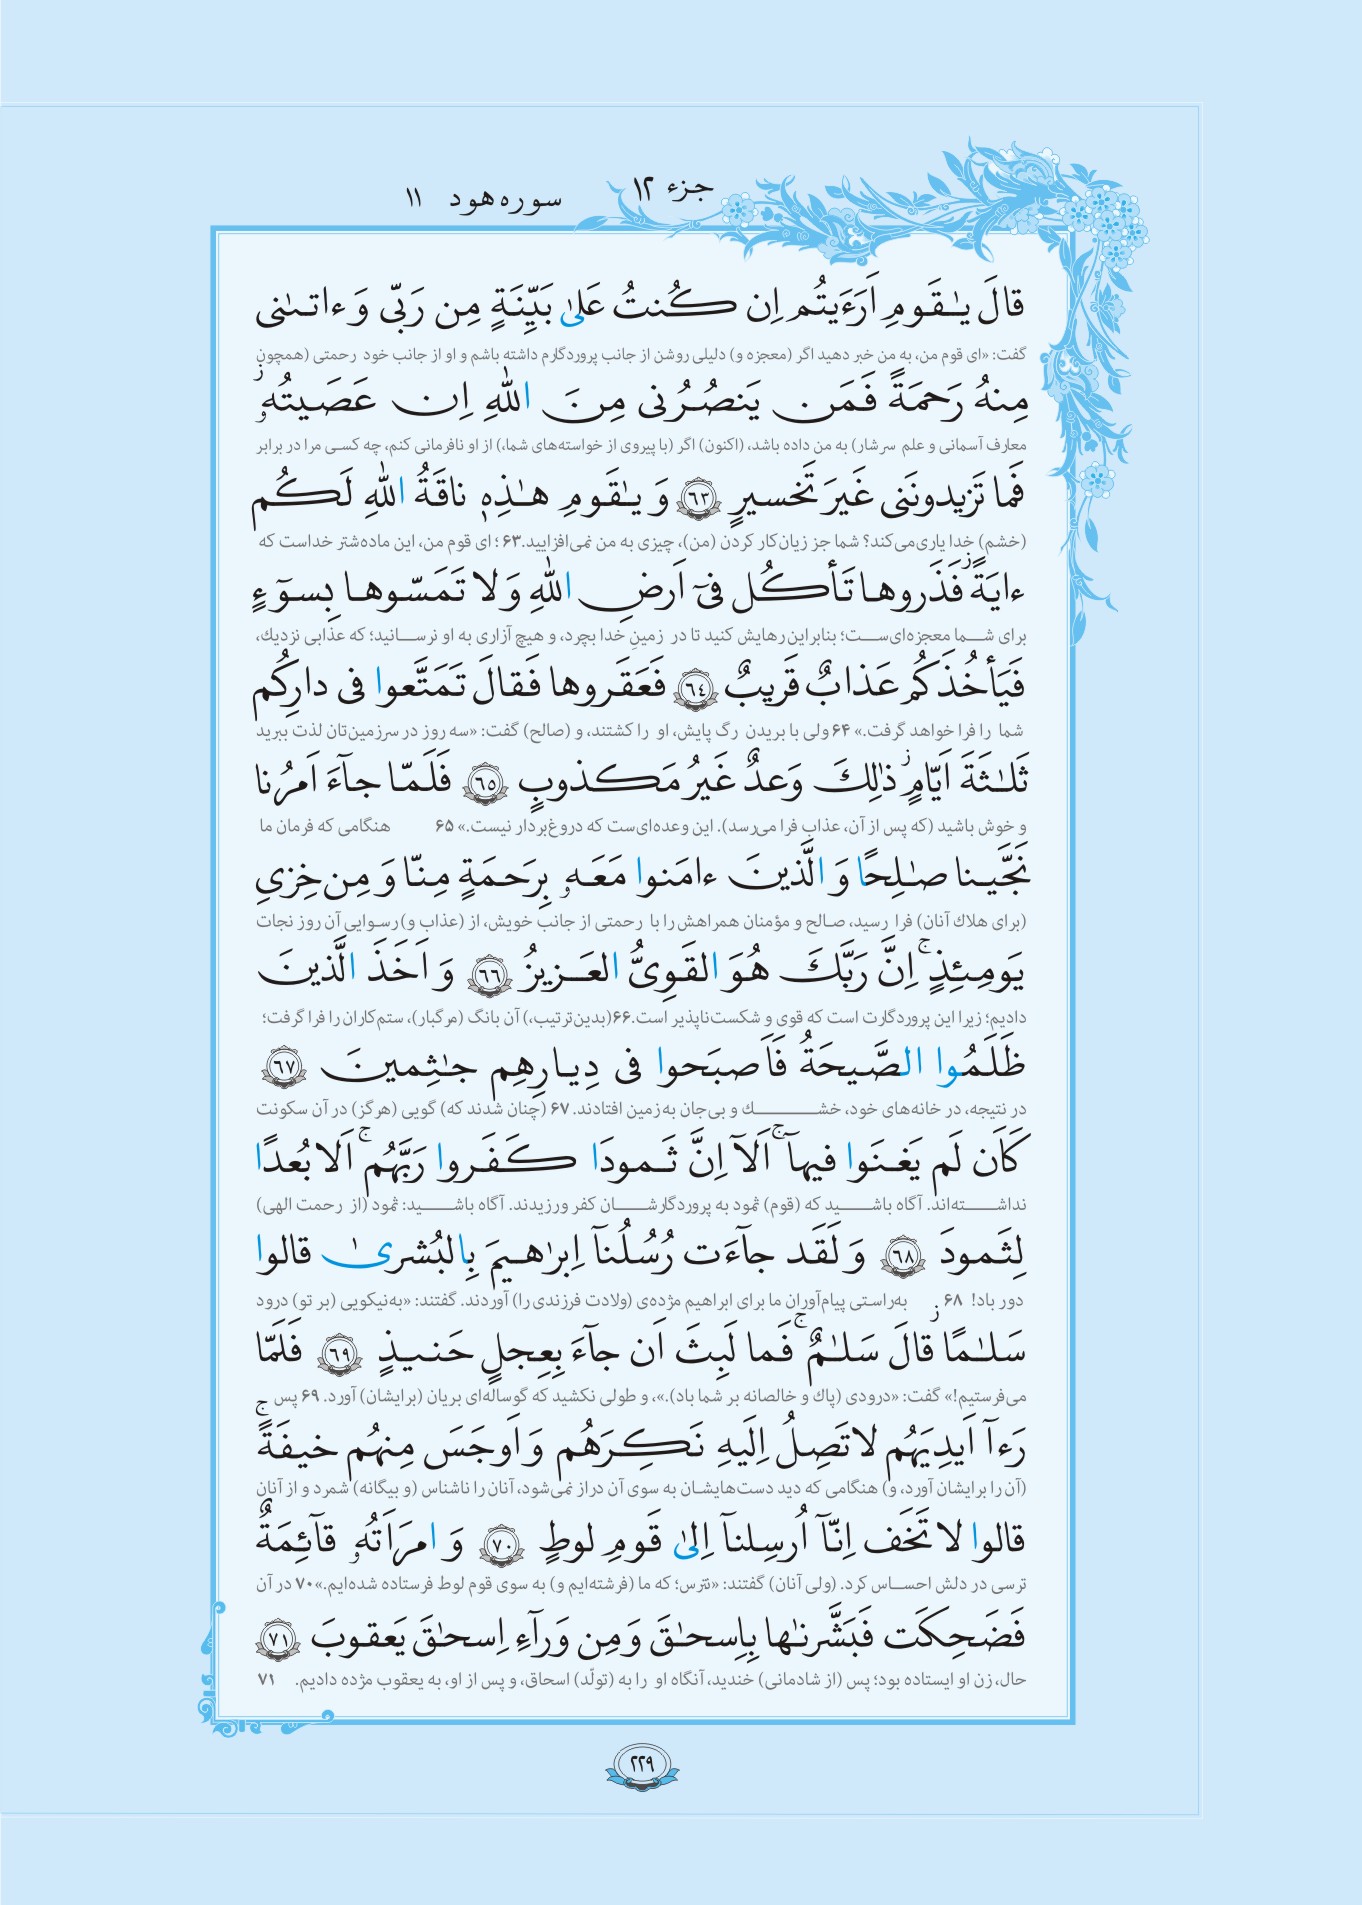 جزء ۱۲
سوره هود ۱۱
قالَ يـٰقَومِ اَرَءَيتُم اِن كُنتُ عَلىٰ بَيِّنَةٍ مِن رَبّى وَ ءاتـٰنى
گفت: «ای قوم من، به من خبر دهید اگر (معجزه و) دلیلی روشن از جانب پروردگارم داشته باشم و او از جانب خود رحمتی (همچون
مِنهُ رَحمَةً فَمَن يَنصُرُنى مِنَ اللّٰهِ اِن عَصَيتُهُۥ ز
معارف آسمانی و علم سرشار) به من داده باشد، (اکنون) اگر (با پیروی از خواسته‌های شما،) از او نافرمانی کنم، چه کسی مرا در برابر
فَما تَزيدونَنى غَيرَ تَخسيرٍ ﴿٦٣﴾ وَ يـٰقَومِ هـٰذِهِۦ ناقَةُ اللّٰهِ لَكُم
(خشم) خدا یاری می‌کند؟ شما جز زیان‌کار کردن (من)، چیزی به من نمی‌افزایید.۶۳ ؛ ای قوم من، این ماده‌شتر خداست که
ءايَةً ز فَذَروها تَأكُل فىٓ اَرضِ اللّٰهِ وَ لا تَمَسّوها بِسوٓءٍ
برای شـما معجزه‌ای‌ست؛ بنابراین رهایش کنید تا در زمینِ خدا بچرد، و هیچ آزاری به او نرسـانید؛ که عذابی نزدیك،
فَيَأخُذَكُم عَذابٌ قَريبٌ ﴿٦٤﴾ فَعَقَروها فَقالَ تَمَتَّعوا فى دارِكُم
شما را فرا خواهد گرفت.» ۶۴ ولی با بریدن رگ پایش، او را کشتند، و (صالح) گفت: «سه روز در سرزمین‌تان لذت ببرید
ثَلـٰثَةَ اَيّامٍ ز ذٰلِكَ وَعدٌ غَيرُ مَكذوبٍ ﴿٦٥﴾ فَلَمّا جآءَ اَمرُنا
و خوش باشید (که پس از آن، عذاب فرا می‌رسد). این وعده‌ای‌ست که دروغ‌بردار نیست.» ۶۵ هنگامی که فرمان ما
نَجَّينا صـٰلِحًا وَ الَّذينَ ءامَنوا مَعَهُۥ بِرَحمَةٍ مِنّا وَ مِن خِزىِ
(برای هلاك آنان) فرا رسید، صالح و مؤمنان همراهش را با رحمتی از جانب خویش، از (عذاب و) رسوایی آن روز نجات
يَومِئِذٍ ج اِنَّ رَبَّكَ هُوَ القَوِىُّ العَزيزُ ﴿٦٦﴾ وَ اَخَذَ الَّذينَ
دادیم؛ زیرا این پروردگارت است که قوی و شکست‌ناپذیر است.۶۶(بدین‌ترتیب،) آن بانگ (مرگبار)، ستم‌کاران را فرا گرفت؛
ظَلَمُوا الصَّيحَةُ فَاَصبَحوا فى دِيـارِهِم جـٰثِمينَ ﴿٦٧﴾
در نتیجه، در خانه‌های خود، خشـك و بی‌جان به‌زمین افتادند. ۶۷ (چنان شدند که) گویی (هرگز) در آن سکونت
كَاَن لَم يَغنَوا فيهآ ج اَلآ اِنَّ ثَمودَا كَفَروا رَبَّهُم ج اَلا بُعدًا
نداشـته‌اند. آگاه باشـید که (قوم) ثمود به پروردگارشـان کفر ورزیدند. آگاه باشـید: ثمود (از رحمت الهی)
لِثَمودَ ﴿٦٨﴾ وَ لَقَد جآءَت رُسُلُنآ اِبرٰهيمَ بِالبُشرىٰ قالوا
دور باد! ۶۸ به‌راستی پیام‌آوران ما برای ابراهیم مژده‌ی (ولادت فرزندی را) آوردند. گفتند: «به‌نیکویی (بر تو) درود
سَلـٰمًا ز قالَ سَلـٰمٌ ج فَما لَبِثَ اَن جآءَ بِعِجلٍ حَنيذٍ ﴿٦٩﴾ فَلَمّا
می‌فرستیم!» گفت: «درودی (پاك و خالصانه بر شما باد).»، و طولی نکشید که گوساله‌ای بریان (برایشان) آورد. ۶۹ پس
رَءآ اَيدِيَهُم لا تَصِلُ اِلَيهِ نَكِرَهُم وَ اَوجَسَ مِنهُم خيفَةً ج
(آن را برایشان آورد، و) هنگامی که دید دست‌هایشـان به سوی آن دراز نمی‌شود، آنان را ناشناس (و بیگانه) شمرد و از آنان
قالوا لا تَخَف اِنّآ اُرسِلنآ اِلىٰ قَومِ لوطٍ ﴿٧٠﴾ وَ امرَاَتُهُۥ قآئِمَةٌ
ترسی در دلش احسـاس کرد. (ولی آنان) گفتند: «نترس؛ که ما (فرشته‌ایم و) به سوی قوم لوط فرستاده شده‌ایم.»۷۰ در آن
فَضَحِكَت فَبَشَّرنـٰها بِاِسحـٰقَ وَ مِن وَرآءِ اِسحـٰقَ يَعقوبَ ﴿٧١﴾
حال، زن او ایستاده بود؛ پس (از شادمانی) خندید، آنگاه او را به (تولّد) اسحاق، و پس از او، به یعقوب مژده دادیم. ۷۱
۲۲۹